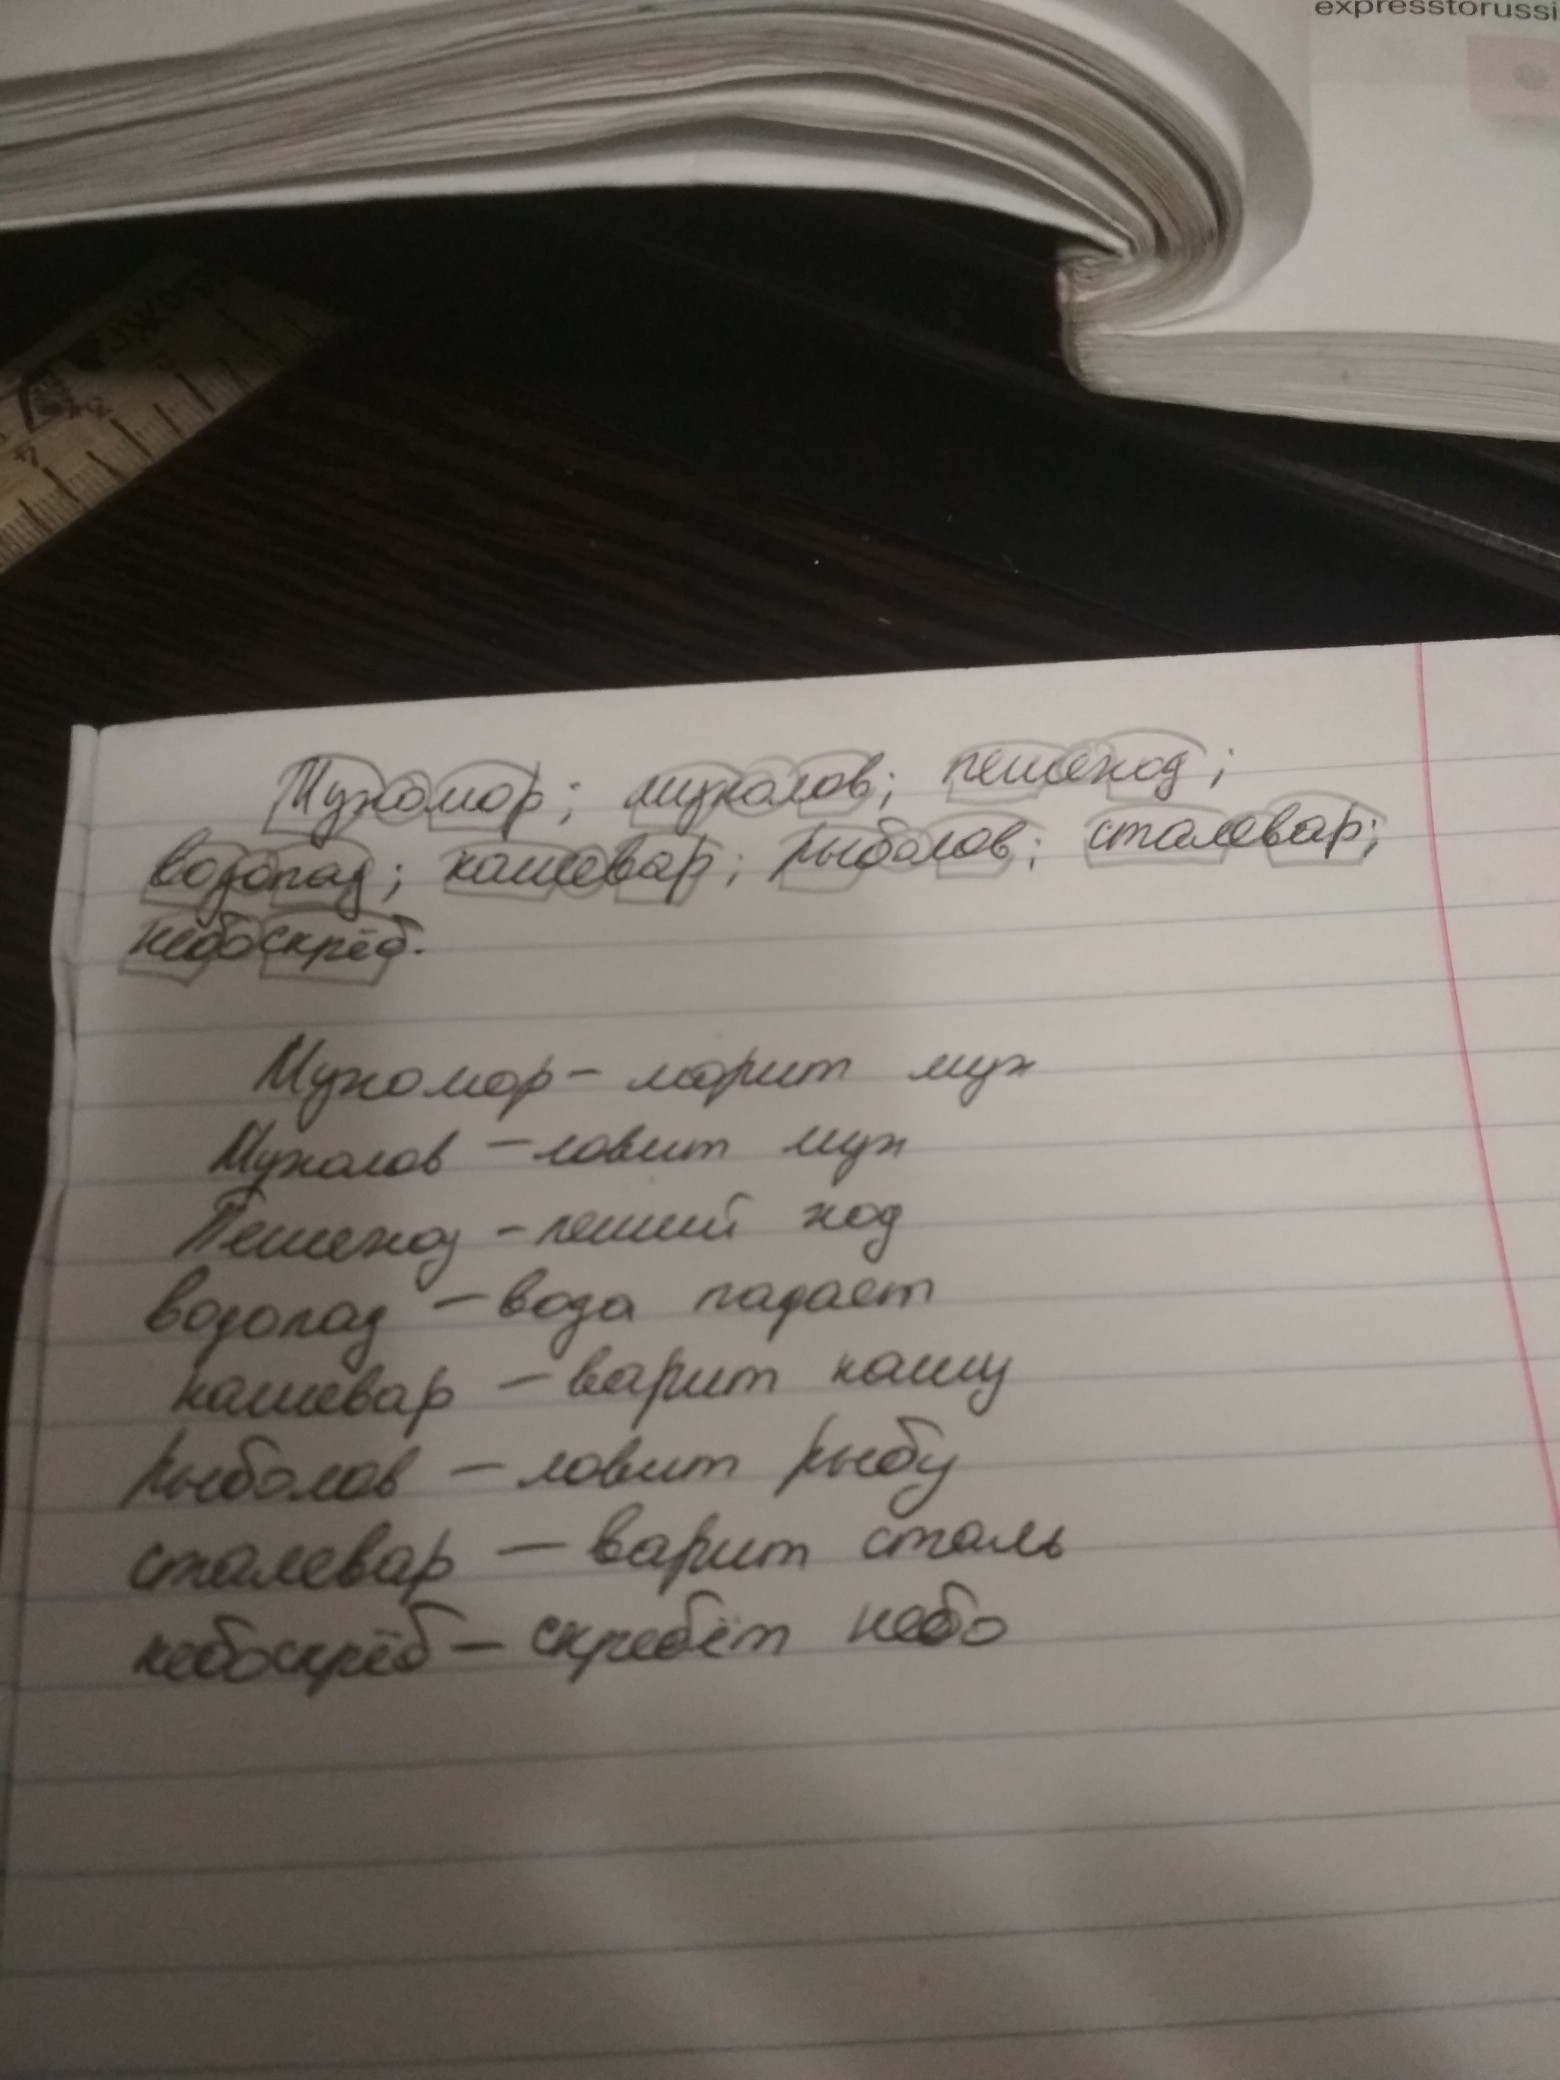 expresstorussi
Мухомор; мухолов; пешеход;
водопад; кашевар; рыболов; сталевар;
небоскрёб.
Мухомор - морит мух
Мухолов - ловит мух
Пешеход - пеший ход
водопад - вода падает
кашевар - варит кашу
рыболов - ловит рыбу
сталевар - варит сталь
небоскрёб - скребёт небо